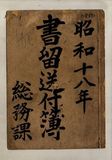 昭和十八年
書留送付簿
総務課